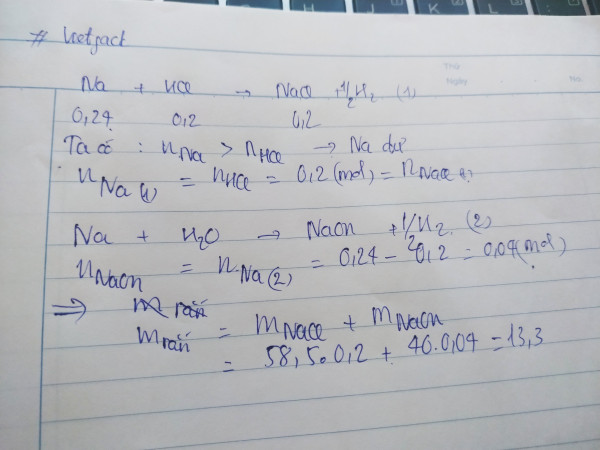 # Vietjack
Na + HCl → NaCl + 1/2H2 (1)
0,24 0,2 0,2
Ta có : nNa > nHCl → Na dư
nNa (1) = nHCl = 0,2 (mol) = nNaCl (1)
Na + H2O → NaOH + 1/2H2 (2)
nNaOH = nNa (2) = 0,24 - 0,2 = 0,04 (mol)
⇒ m rắn
m rắn = mNaCl + mNaOH
= 58,5.0,2 + 40.0,04 = 13,3